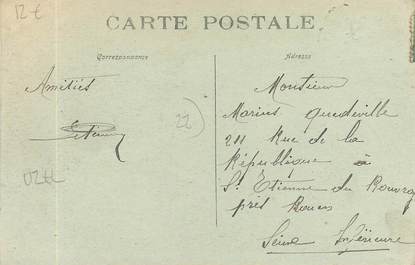 12 €
CARTE POSTALE
Correspondance
Adresse
Amitiés
22
Monsieur
Marius
211 Rue de la
République à
St Etienne du Rouvray
près Rouen
Seine Inférieure